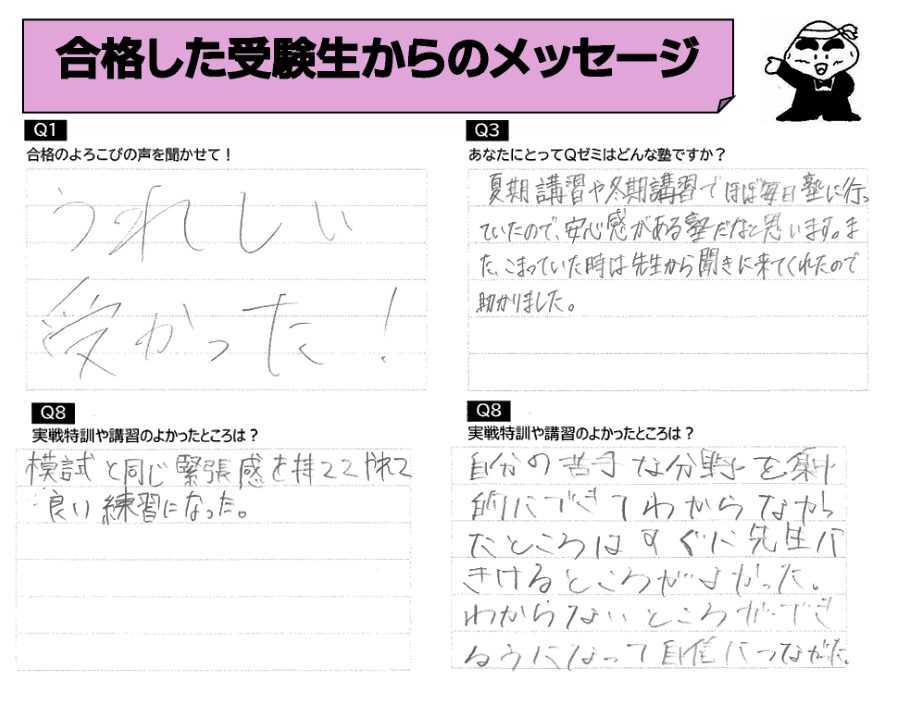 合格した受験生からのメッセージ
Q1
合格のよろこびの声を聞かせて!
うれしい
受かった!
Q3
あなたにとってQゼミはどんな塾ですか?
夏期講習や冬期講習でほぼ毎日塾に行っ
ていたので、安心感がある塾だなと思います。ま
た、こまっていた時は先生から聞きに来てくれたので
助かりました。
Q8
実戦特訓や講習のよかったところは?
模試と同じ緊張感を持ててやれて
良い練習になった。
Q8
実戦特訓や講習のよかったところは?
自分の苦手な分野を集中
的にできてわからなかっ
たところはすぐに先生に
きけるところがよかった。
わからないところができ
るうになって自信につながった。